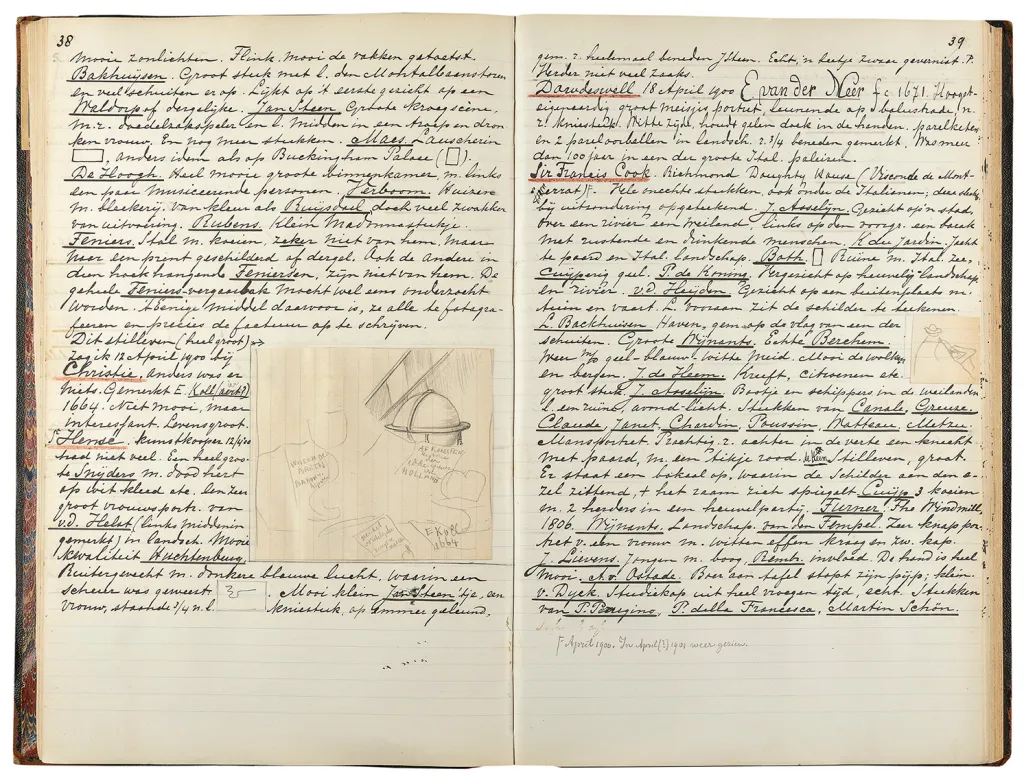 38
mooie zonlichten. Flink. Mooi de vakken getoetst.
Bakhuijsen. Groot stuk met l. den Montalbaanstoren
en veel schuiten er op. Lijkt op 't eerste gezicht op een
Weldorp of dergelijke. Jan Steen, Groote kroegscène,
m. r. doedelzakspeler en l. midden in een troep en dron
ken vrouw. En nog meer stukken. Maes. Lauscherin
, anders idem als op Buckingham Palace ( ).
De Hoogh. Heel mooie groote binnenkamer, m. links
een paar musiceerende personen. Verboom. Huizen
m. bleekerij. Van kleur als Ruijsdael doch veel zwakker
van uitvoering. Rubens. Klein Madonnastukje.
Teniers. Stal m. koeien, zeker niet van hem, maar
naar een prent geschilderd of dergel. Ook de andere in
dien hoek hangende Teniersen, zijn niet van hem. De
geheele Teniers-vergaarbak mocht wel eens onderzocht
worden. 't Eenige middel daarvoor is, ze alle te fotogra-
feeren en precies de factuur op te schrijven.
Dit stilleven (heel groot)
zag ik 12 April 1900 bij
Christie, anders was er
niets. Gemerkt E. Koll
1664. Niet mooi, maar
interessant. Levensgroot.
Hense. kunstkooper 12/4/00
had niet veel. Een heel groo-
te Snijders m. dood hert
op wit kleed etc. Een zeer
groot vrouwsportr. van
v.d. Helst (links midden in
gemerkt) in landsch. Mooie
kwaliteit Huchtenburg,
Ruitergevecht m. donkere blauwe lucht, waarin een
scheur was geweest. Mooi klein Jan Steen'tje, een
vrouw, staande 3/4 n. l. kniestuk op emmer geleund,
E. Koll
1664
HOLLAND
39
gem. r. heelemaal beneden JSteen. Echt, 'n beetje zwaar gevernist.
Verder niet veel zaaks.
Dowdeswell 18 April 1900 E. van der Neer f c 1671. Hoogst
eigenaardig groot meisjesportret, leunende op balustrade, n.
r. kniestuk. Witte zijde, houdt gelen doek in de handen. parelketen
en 2 pareloorbellen in landsch. r. 3/4 beneden gemerkt. Was meer
dan 100 jaar in een der groote Ital. paleizen.
Sir Francis Cook. Richmond Doughty House (Visconde de Mont-
serrat). Vele slechte stukken, ook onder de Italienen; deze slechts
bij uitzondering opgeteekend. J. Asselyn. Gezicht op 'n stad,
over een rivier een weiland, links op den voorgr. een barak
met rustende en drinkende menschen. K. du Jardin. Jacht
te paard en Ital. landschap. Both. Ruine m. Ital. zee,
Cuijperig geel. P. de Koning. Vergezicht op heuvelig landschap
en rivier. v.d. Heijden Gezicht op een buitenplaats m.
tuin en vaart. L. vooraan zit de schilder te teekenen.
L. Backhuisen. Haven, gem. op de vlag van een der
schuiten. Groote Wijnants. Echte Berchem
weer geel-blauw. witte meid. Mooi de wolken
en bergen. J. de Heem. Kreeft, citroenen etc.
groot stuk. J. Asselyn Bootje en schippers in de weilanden
l. een ruïne, avond-licht. Stukken van Canale, Greuze,
Claude, Janet, Chardin, Poussin, Watteau, Metzu.
Mansportret. Prachtig. r. achter in de verte een knecht
met paard, m. een tikje rood. Stilleven, groot.
Er staat een bokaal op, waarin de schilder aan den e-
zel zittend, + het raam zich spiegelt. Cuijp 3 koeien
m. 2 herders in een heuvelpartij. Turner, The Windmill
1806. Wijnants. Landschap. van den Tempel. Zeer knap por-
tret v. een vrouw m. witten effen kraag en zw. kap.
J. Lievens. Jongen m. boog, Rembr. invloed. De hand is heel
mooi. A. v. Ostade. Boer aan tafel stopt zijn pijp; klein.
v. Dyck. Studiekop uit heel vroegen tijd, echt. Stukken
van P. Perugino, P. della Francesca, Martin Schön.
April 1900. In April (?) 1901 weer gezien.